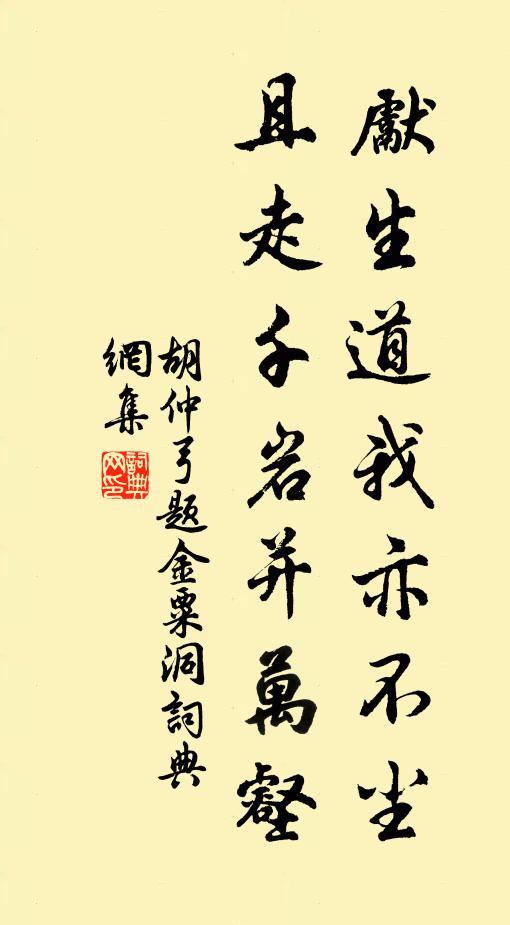 獻生道我亦不坐
且走千岩并萬壑
胡仲弓题金粟洞詞典
網集
詞典网印